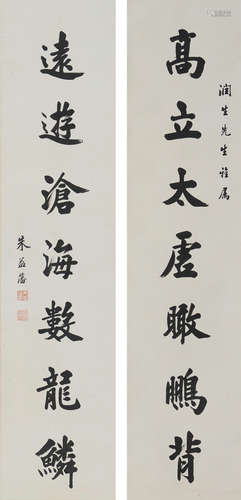 潤生先生雅屬
高立太虛瞰鵬背
遠遊滄海數龍鱗
朱益藩